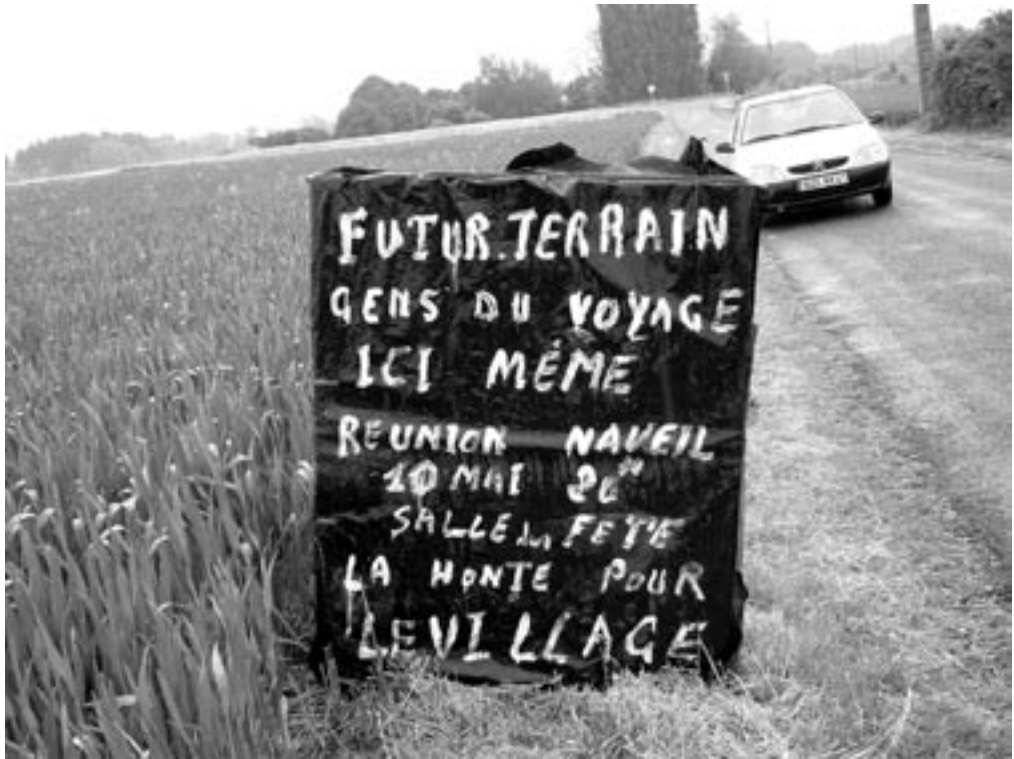 FUTUR.TERRAIN
GENS DU VOYAGE
ICI MÊME
REUNION NAVEIL
10 MAI 20H
SALLE des FETE
LA HONTE POUR
LE VILLAGE